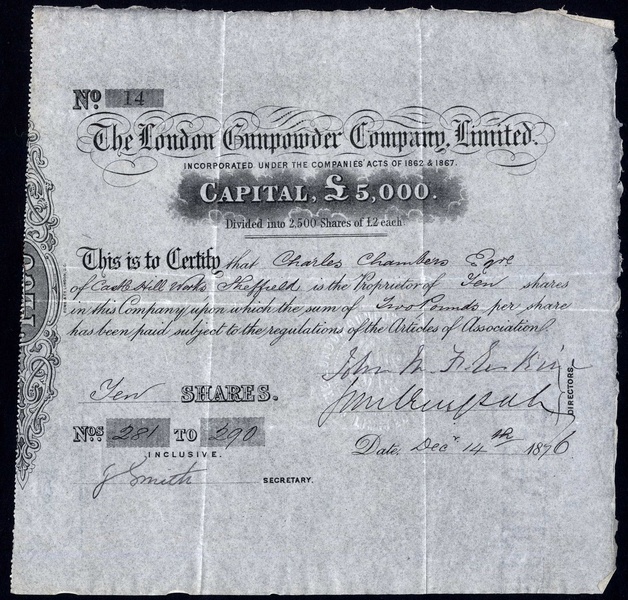 No 14
The London Gunpowder Company, Limited.
INCORPORATED UNDER THE COMPANIES ACTS OF 1862 & 1867.
CAPITAL, £5,000.
Divided into 2,500 Shares of £2 each
This is to Certify that Charles Chambers Esqre
of Castle Hill Works Sheffield is the Proprietor of Ten shares
in this Company upon which the sum of Two Pounds per share
has been paid, subject to the regulations of the Articles of Association.
John M
Ten SHARES.
DIRECTORS.
Nos 281 TO 290
INCLUSIVE.
Date, Decr 14th 1876
J Smith SECRETARY.